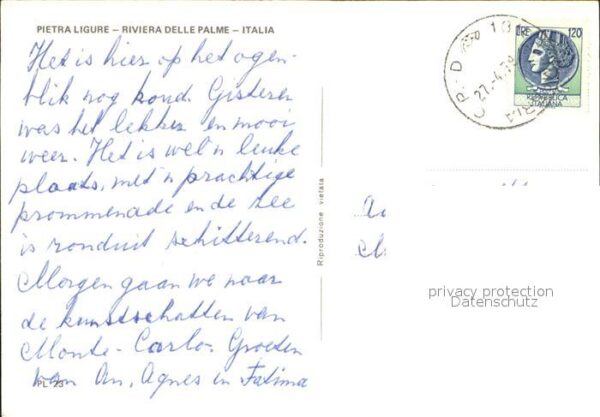 PIETRA LIGURE – RIVIERA DELLE PALME – ITALIA
Het is hier op het ogen-
blik nog koud. Gisteren
was het lekker en mooi
weer. Het is wel 'n leuke
plaats, met 'n prachtige
prommenade en de zee
is ronduit schitterend.
Morgen gaan we naar
de kunstschatten van
Monte-Carlo. Groeten
van An, Agnes en Fatima
PL 23
Riproduzione vietata
LIRE 120
REPUBBLICA
ITALIANA
27.-4.79
privacy protection
Datenschutz